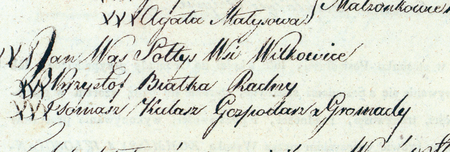 XXX Agata Matysowa } Małżonkowie
XXX Jan Wąs Sołtys Wsi Wilkowice
XXX Krzysztof Białka Radny
XXX Tomasz Kulasz Gospodarz z Gromady